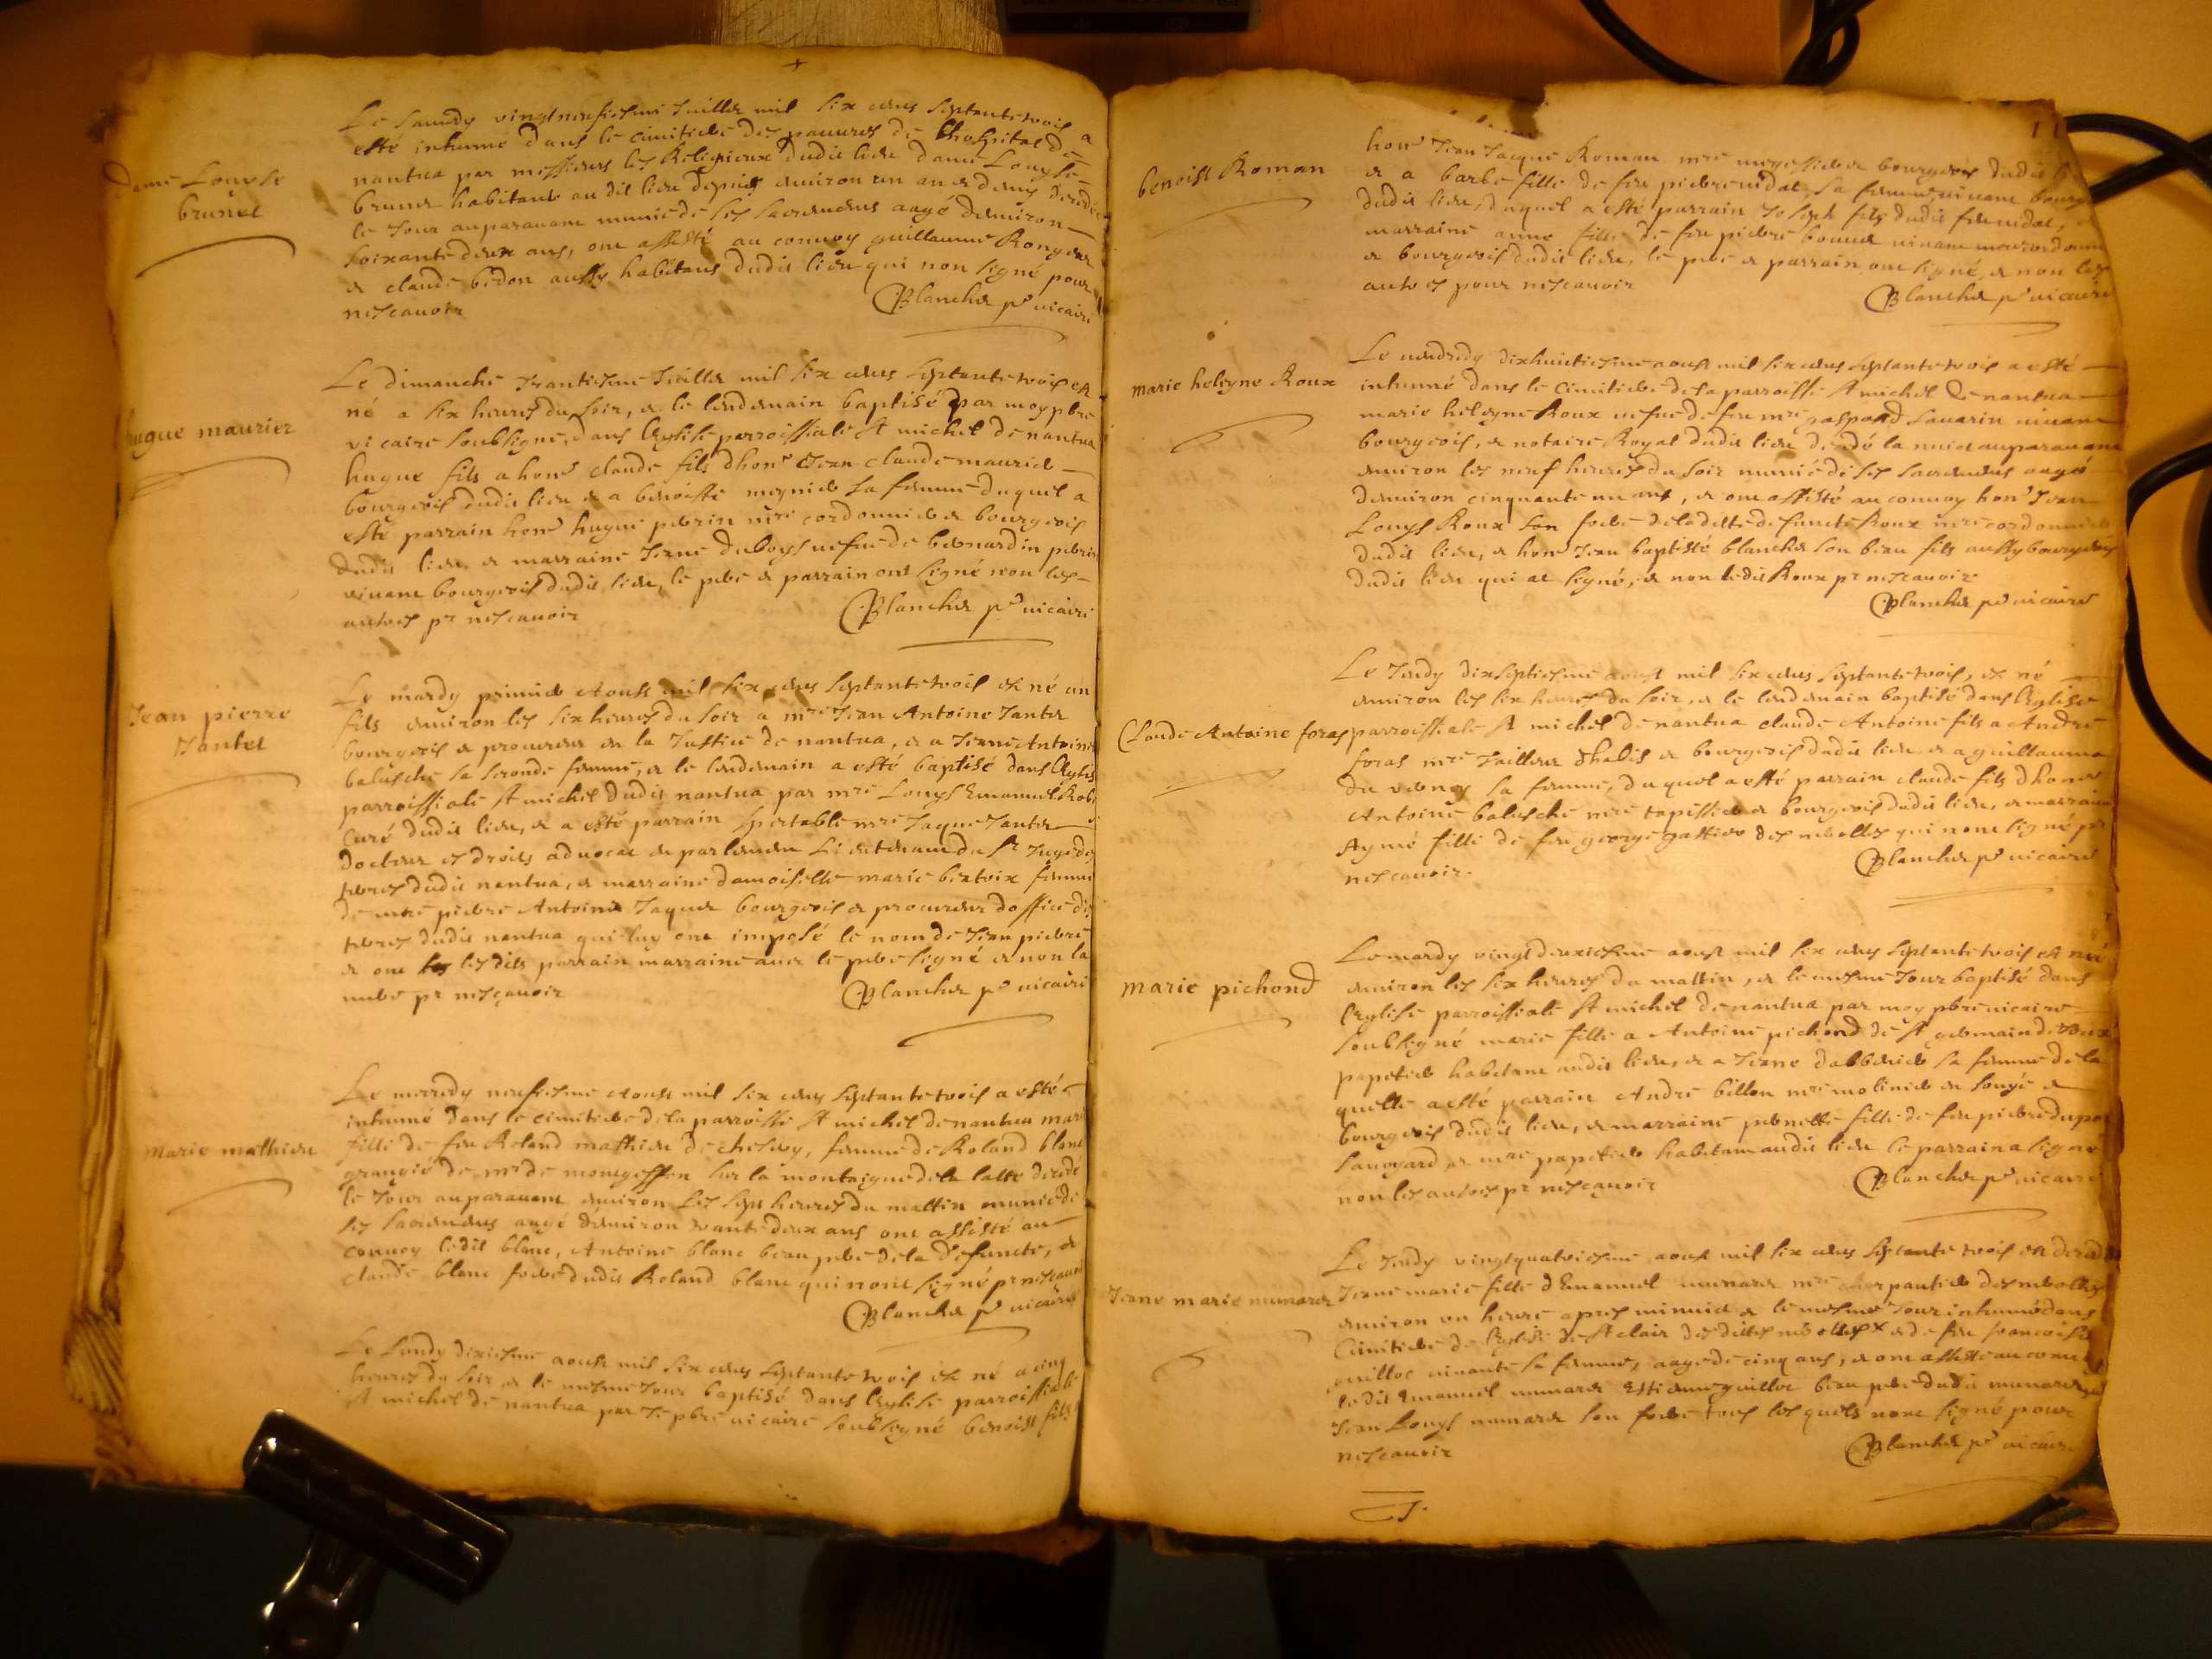 Le samedy vingtneufiesme Juillet mil six cens septantetrois a
esté inhumé dans le cimitiere des pauures de lhospital de
nantua par messieurs les Religieux dudit lieu dame Louyse
dame Louyse
brunet
brunet habitant au dit lieu depuis enuiron un an et demy decedée
le Jour auparauant munie de ses sacremens aagé denuiron
soixante deux ans, ont assisté au conuoy guillaume Ronger
et claude bedon aussy habitans dudit lieu qui non signé pour
nescauoir
Blanchet pre vicaire
Le dimanche trantiesme Juillet mil six cens septantetrois est
né a six heures du soir, et le lendemain baptisé par moy pbre
vicaire soubsigné, dans leglise parroissiale st michel de nantua
hugue maurier
hugue fils a honn claude fils dhonn Jean claude maurier
bourgeois dudit lieu et a benoiste meynier sa femme duquel a
esté parrain honn hugue perrin mre cordonnier et bourgeois
dudit lieu et marraine Jeane duboys uefue de bernardin perrin
uiuant bourgeois dudit lieu, le pere et parrain ont signé non les
autres pr nescauoir
Blanchet pre vicaire
Le mardy premier Aoust mil six cens septantetrois est né un
fils enuiron les six heures du soir a mre Jean Antoine Jantet
Jean pierre
Jantet
bourgeois et procureur en la Justice de nantua, et a Jeane Antoine
balesche sa seconde femme, et le lendemain a esté baptisé dans leglise
parroissiale st michel dudit nantua par mre Louys Emanuel Robi
Curé dudit lieu, et a esté parrain spectable mre Jaque Jantet
docteur es droits aduocat en parlement Lieutenant du sr Juge des
terres dudit nantua, et marraine damoiselle marie bertrix femme
de mre pierre Antoine Jaquet bourgeois et procureur doffice des
terres dudit nantua qui luy ont imposé le nom de Jean pierre
et ont les dits parrain marraine auec le pere signé et non la
mere pr nescauoir
Blanchet pre vicaire
Le mecredy neufiesme Aoust mil six cens septantetrois a esté
inhumé dans le cimitiere de la parroisse st michel de nantua marie
marie mathieu
fille de feu Roland mathieu de chesery, femme de Roland blanc
grangié de mr de mongeffon sur la montaigne de decedé
le Jour auparauant enuiron les sept heures du mattin munie de
ses sacremens aagé denuiron trante deux ans ont assisté au
conuoy ledit blanc, Antoine blanc beau pere de la defuncte, et
claude blanc frere dudit Roland blanc qui nont signé pr nescauoir
Blanchet pre vicaire
Le Lundy dixiesme aoust mil six cens septantetrois est né a cinq
heures du soir et le mesme Jour baptisé dans leglise parroissiale
st michel de nantua par Je pbre vicaire soubsigné benoist fils a
11
benoist Roman
honn Jean Jacque Roman mre megissier et bourgeois dudit lieu
et a barbe fille de feu pierre uidal, sa femme, uiuant bourgeois
dudit lieu, duquel a esté parrain Joseph fils dudit feu uidal, et
marraine anne fille de feu pierre bouuet uiuant mre cordonnier
et bourgeois dudit lieu, le pere et parrain ont signé, et non les
autres pour nescauoir
Blanchet pre vicaire
Le uendredy dixhuictiesme aoust mil six cens septantetrois a esté
marie heleyne Roux
inhumé dans le cimitiere de la parroisse st michel de nantua
marie heleyne Roux uefue de feu mre gaspard sauarin uiuant
bourgeois, et notaire Royal dudit lieu decedé la nuict auparauant
enuiron les neuf heures du soir munie de ses sacremens aagé
denuiron cinquante un ans, et ont assisté au conuoy honn Jean
Louys Roux son frere de ladite defuncte Roux mre cordonnier
dudit lieu, et honn Jean baptiste blanchet son beau fils aussy bourgeois
dudit lieu qui at signé, et non ledit Roux pr nescauoir
Blanchet pre vicaire
Le Jeudy dixseptiesme aoust mil six cens septantetrois, est né
enuiron les six heures du soir, et le lendemain baptisé dans leglise
Claude Antoine foras
parroissiale st michel de nantua claude Antoine fils a André
foras mre tailleur dhabis et bourgeois dudit lieu et a guillauma
du uerney sa femme, duquel a esté parrain claude fils dhonn
Antoine balesche mre tapissier et bourgeois dudit lieu, et marraine
Aymé fille de feu george gattier des nerolles qui nont signé pr
nescauoir.
Blanchet pre vicaire
Le mardy vingtdeuxiesme aoust mil six cens septantetrois est née
enuiron les six heures du mattin, et le mesme Jour baptisé dans
marie pichond
leglise parroissiale st michel de nantua par moy pbre vicaire
soubsigné marie fille a Antoine pichond de st germain de
papetier habitant audit lieu, et a Jeane dabberier sa femme de la
quelle a esté parrain André billon mre molinier en songé et
bourgeois dudit lieu, et marraine pernette fille de feu pierre dupon
sauoyard, et mre papetier habitant audit lieu le parrain a signé
non les autres pr nescauoir
Blanchet pre vicaire
Le Jeudy vingtquatriesme aoust mil six cens septantetrois est decedée
Jeane marie munaret
Jeane marie fille dEmanuel munaret mre charpantier des nerolles
enuiron un heure apres minuict et le mesme Jour inhumé dans
Cimitiere de leglise de st clair desdites nerolles x et de feu francoise
guilloc uiuante sa femme, aagé de cinq ans, et ont assisté au conuoy
ledit Emanuel munaret Estienne guilloc beau pere dudit munaret et
Jean Louys munaret son frere tous lesquels nont signé pour
nescauoir
Blanchet pre vicaire